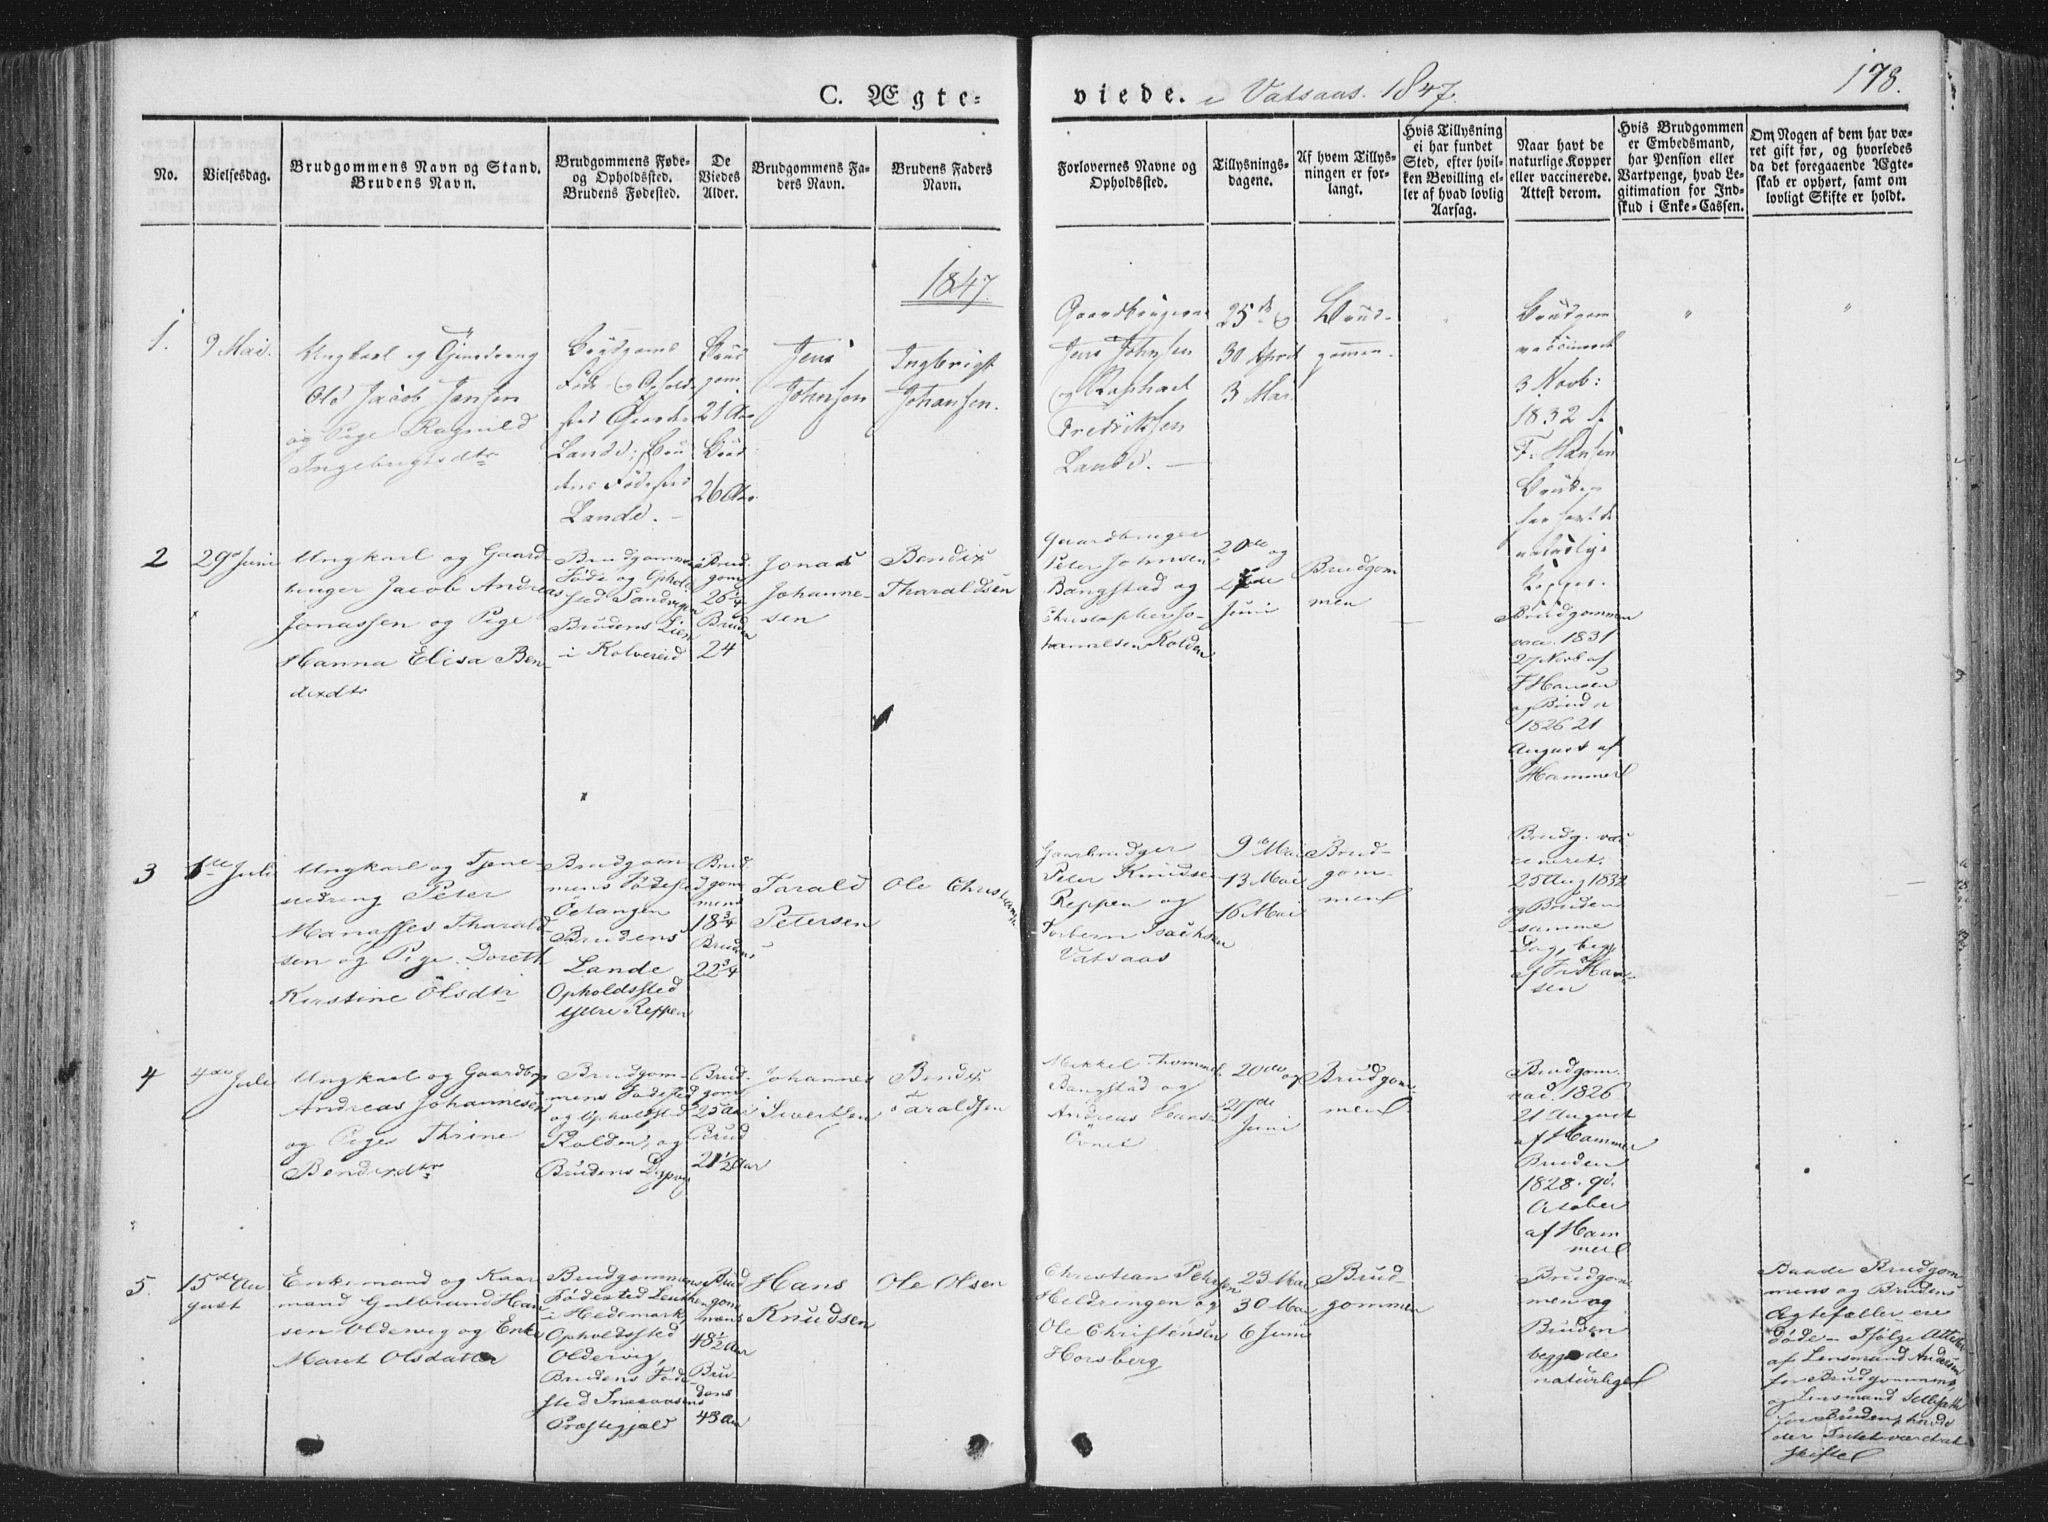 C. Ægte-
viede. i Vatsaas. 1847.
178.
No.
Vielsesdag.
Brudgommens Navn og Stand.
Brudens Navn.
Brudgommens Føde-
og Opholdssted.
Brudens Fødested.
De
Viedes
Alder.
Brudgommens Fa-
ders Navn.
Brudens Faders
Navn.
Forlovernes Navne og
Opholdssted.
Tillysnings-
dagene.
Af hvem Tillys-
ningen er for-
langt.
Hvis Tillysning
ei har fundet
Sted, efter hvil-
ken Bevilling el-
ler af hvad lovlig
Aarsag.
Naar havt de
naturlige Kopper
eller vaccinerede.
Attest derom.
Hvis Brudgommen
er Embedsmand,
har Pension eller
Vartpenge, hvad Le-
gitimation for Ind-
skud i Enke-Cassen.
Om Nogen af dem har væ-
ret gift før, og hvorledes
da det foregaaende Ægte-
skab er ophørt, samt om
lovligt Skifte er holdt.
1847.
1.
9 Mai.
Ungkarl og
Ole Jacob Jensen
og Pige Ragnild
Ingebrigtsdtr
Lande;
Lande.
21 Aar
26 Aar
Jens
Johnsen
Ingbrigt
Johansen.
Jens Johnsen
og Raphael
Fredriksen
Lande.
25de og
30 April
3 Mai
Brud-
gommen.
Brudgom
vaccineret
3 Novb:
1832 af
F. Hansen
Bruden
har havt de
naturlige
Kopper.
2
29de Juni
Ungkarl og Gaard
bruger Jacob Andreas
Jonassen og Pige
Hanna Elisa Ben
dixdtr
Brudgommens
Føde og Ophold
sted Sandvigen
Brudens Lien
i Kolvereid
Brud-
gom
26 1/4
Bruden
24
Jonas
Johanne-
sen
Bendix
Tharaldsen
Gaardbruger
Peter Johnsen
Bangstad og
Christopher Jo-
hannesen Kolden
20de og
27de
Juni
Brudgom
men
Brudgommen
vac. 1831
27 Novb af
F Hansen
og Bruden
1826 21
August af
Hammer
3
1te Juli
Ungkarl og Tjene-
stedreng Peter
Manasses Tharald-
sen og Pige Doreth
Kirstine Olsdtr
Brudgom-
mens Fødested
Öetangen
Brudens
Lande
Opholdssted
Yttre Reppen
Brud-
gom
mens
18 3/4
Brudens
22 3/4
Tarald
Petersen
Ole Christiansen
Gaarbrudger
Peter Knudsen
Reppen og
Torbern Isachsen
Vatsaas
9de Mai
13 Mai
16 Mai
Brud-
gom-
men
Brudg. vac
cineret.
25 Aug 1832
og Bruden
samme
Dag, beg.
af Fr Han-
sen
4
4de Juli
Ungkarl og Gaardbrg
Andreas Johannesen
og Piges Thrine
Bendixdtr
Brudgom-
mens Fødested
og Opholdssted
Kolden, og
Brudens Dypvig
Brud-
gom
25 Aar
Brud
21 1/2 Aar
Johannes
Sivertsen
Bendix
Taraldsen
Mikkel Thommes
Bangstad og
Andreas Hansen
Övnet
20de og
27de
Juni
Brudgom-
men
Brudgom.
vac. 1826
21 August
af Hammer
Bruden
1828. 9d.
October
af Ham
mer
5.
15de Au
gust
Enkemand og Kaar
mand Gulbrand Han
sen Oldervig og Enke
Maret Olsdatter
Brudgommens
Fødested Leuten
i Hedemark
Opholdssted
Oldervig,
Brudens Føde-
sted Sneaasens
Præstegjæld
Brud
gom
mens
48 1/2 Aar
Bru
dens
43 Aar
Hans
Knudsen
Ole Olsen
Christian Petersen
Heldringen, og
Ole Christensen
Horsberg
23 Mai
30 Mai
6 Juni
Brud-
gommen
Brudgom
men og
Bruden
begge de
naturlige
Baade Brudgom
mens og Brudens
Ægtefæller ere
Døde - Ifølge Attester
af Lensmand Andersen
for Brudgommen,
og Lensmand Sellisæth
for Bruden, havde
der Intet været at
skifte